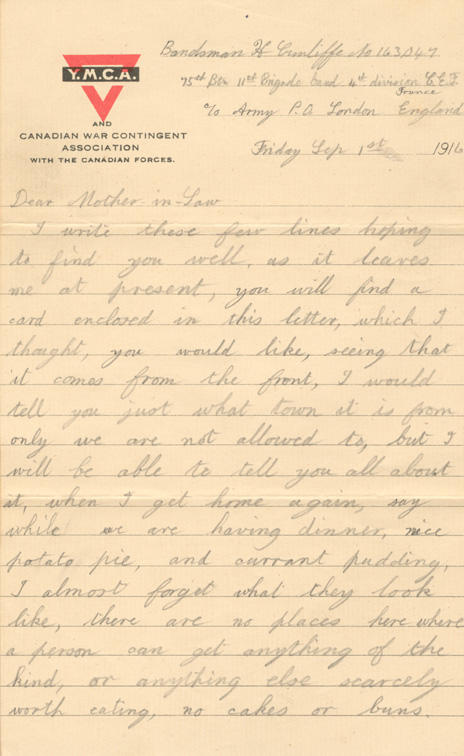 Bandsman H Cunliffe No 163,047
75th Btn 11th Brigade band 4th division C.E.F.
France
c/o Army P.O. London England
Friday Sep 1st 1916
Y.M.C.A.
AND
CANADIAN WAR CONTINGENT
ASSOCIATION
WITH THE CANADIAN FORCES.
Dear Mother-in-Law
I write these few lines hoping
to find you well, as it leaves
me at present, you will find a
card enclosed in this letter, which I
thought, you would like, seeing that
it comes from the front, I would
tell you just what town it is from
only we are not allowed to, but I
will be able to tell you all about
it, when I get home again, say
while we are having dinner, nice
potato pie, and currant pudding,
I almost forget what they look
like, there are no places here where
a person can get anything of the
kind, or anything else scarcely
worth eating, no cakes or buns.